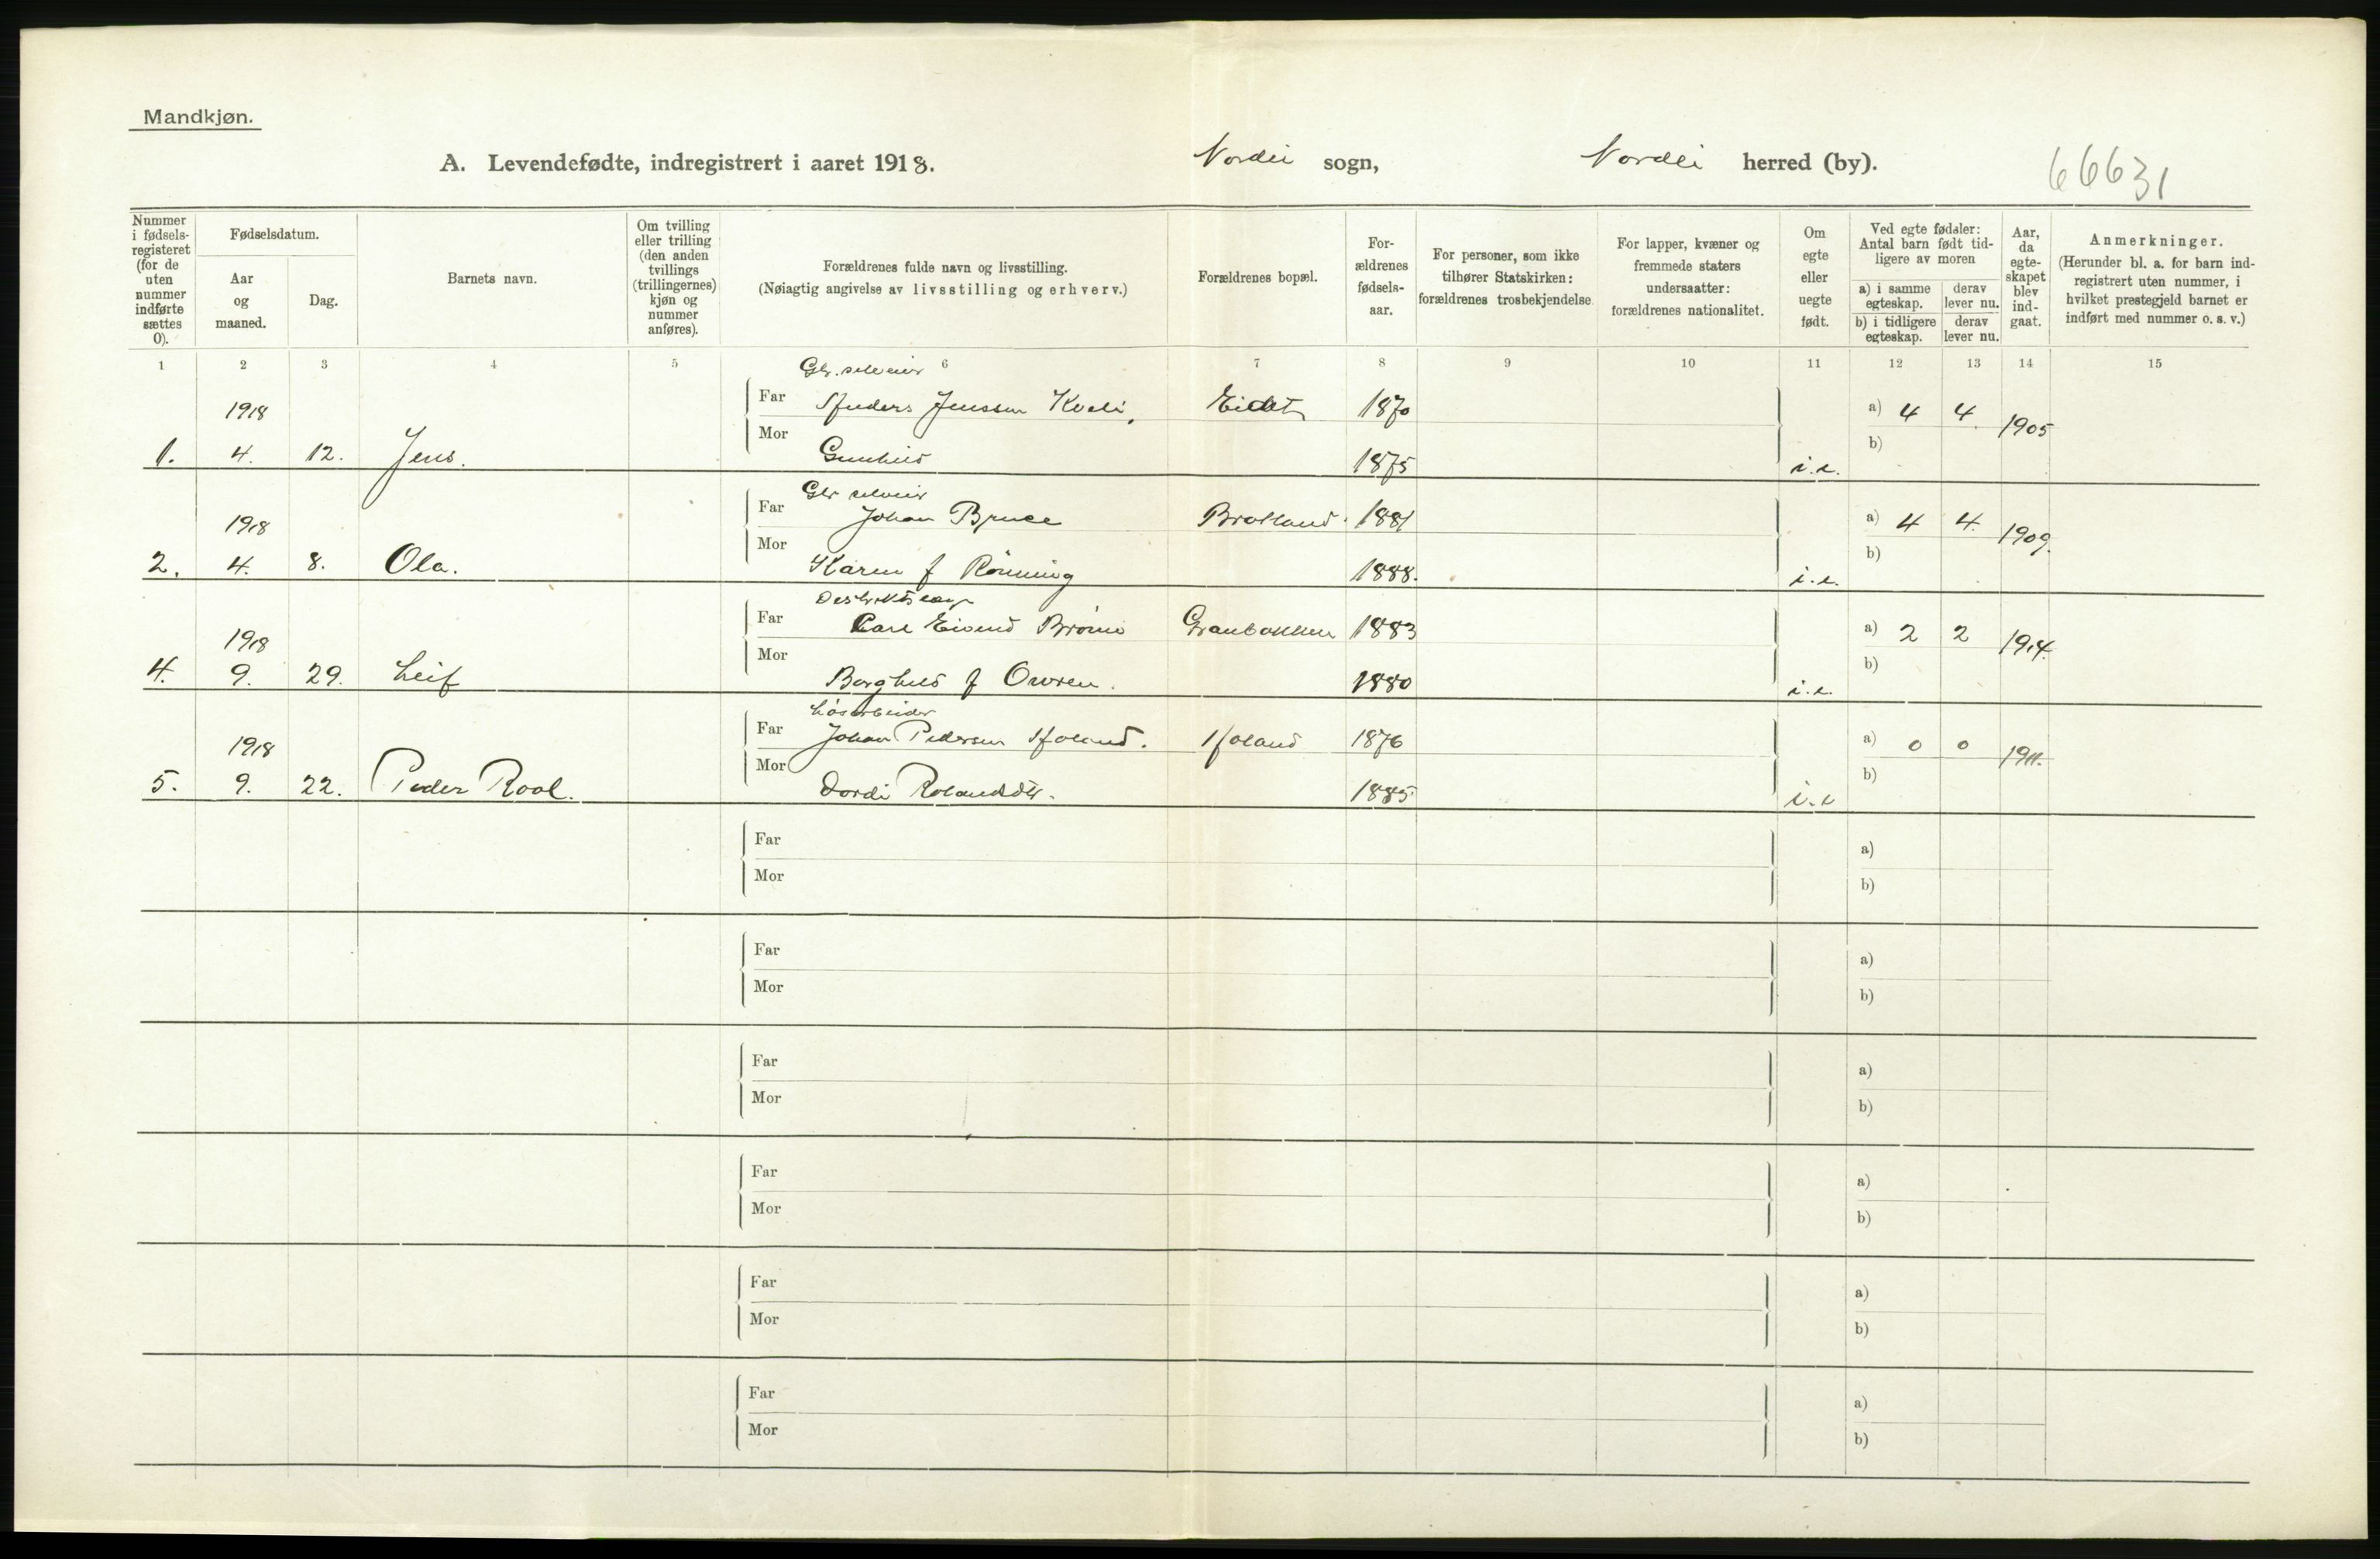 Mandkjøn.
A. Levendefødte, indregistrert i aaret 1918.
Nordli sogn,
Nordli herred (by).
66631
Nummer i fødsels-registeret (for de uten nummer indførte sættes 0).
Fødselsdatum.
Aar og maaned.
Dag.
Barnets navn.
Om tvilling eller trilling (den anden tvillings (trillingernes) kjøn og nummer anføres).
Forældrenes fulde navn og livsstilling.
(Nøiagtig angivelse av livsstilling og erhverv.)
Forældrenes bopæl.
For-ældrenes fødsels-aar.
For personer, som ikke tilhører Statskirken: forældrenes trosbekjendelse.
For lapper, kvæner og fremmede staters undersaatter: forældrenes nationalitet.
Om egte eller uegte født.
Ved egte fødsler: Antal barn født tid-ligere av moren
a) i samme egteskap.
derav lever nu.
b) i tidligere egteskap.
derav lever nu.
Aar, da egte-skapet blev ind-gaat.
Anmerkninger.
(Herunder bl. a. for barn ind-registrert uten nummer, i hvilket prestegjeld barnet er indført med nummer o. s. v.)
1 2 3 4 5 6 7 8 9 10 11 12 13 14 15
Gbr. selveier
1918 Far Jenssen Kveli, Eidet 1870 a) 4 4. 1905
1. 4. 12. Jens. Mor Gunhild 1875 i.e. b)
Gbr selveier
1918 Far Johan Bruce Bratland. 1881 a) 4 4. 1909.
2. 4. 8. Ola. Mor Karen f Rønning 1888. i.e. b)
Distriktslæge
1918 Far Carl Eivind Granbakken 1883 a) 2 2 1914.
4. 9. 29. Leif Mor Borghild f Owren. 1880 i.e. b)
Løsarbeider
1918 Far Johan Pedersen 1876 a) 0 0 1911.
5. 9. 22. Peder Roal. Mor Dordi Rolandsdtr. 1885 i.e b)
Far a)
Mor b)
Far a)
Mor b)
Far a)
Mor b)
Far a)
Mor b)
Far a)
Mor b)
Far a)
Mor b)